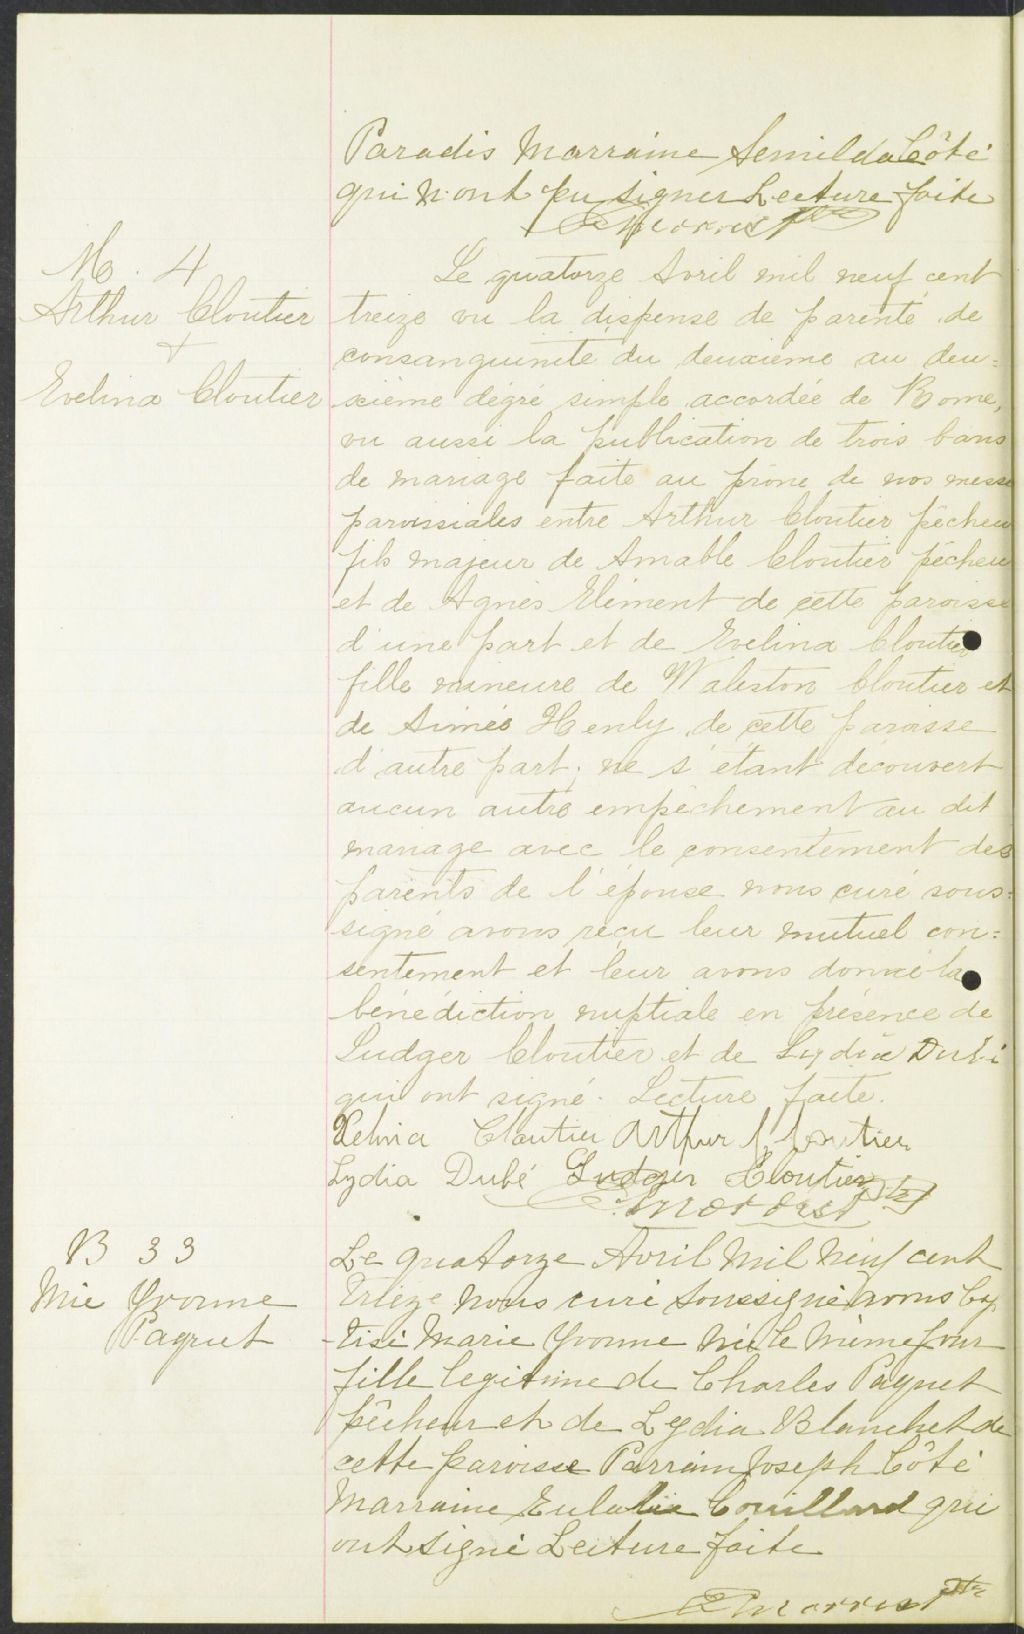 Paradis Marraine Semilda Côté
qui n'ont pu signer Lecture faite
Ptre
M. 4
Arthur Cloutier
+
Evelina Cloutier
Le quatorze Avril mil neuf cent
treize vu la dispense de parenté de
consanguinité du deuxième au deu=
xième dégré simple accordée de Rome,
vu aussi la publication de trois bans
de mariage faite au prône de nos messe
paroissiales entre Arthur Cloutier pêcheu
fils majeur de Amable Cloutier pêcheu
et de Agnès Element de cette paroisse
d'une part et de Evelina Cloutier
fille mineure de Waleston Cloutier et
de Aimée Henly de cette paroisse
d'autre part; ne s'étant découvert
aucun autre empêchement au dit
mariage avec le consentement des
parents de l'épouse nous curé sous=
signé avons reçu leur mutuel con=
sentement et leur avons donné la
bénédiction nuptiale en présence de
Ludger Cloutier et de Lydia Dubé
qui ont signé. Lecture faite.
Cloutier Arthur Cloutier
Lydia Dubé Ludger Cloutier
Ptre
B 33
Mie Yvonne
Paquet
Le quatorze Avril Mil Neuf cent
Trieze nous curé soussigné avons bap
-tisé Marie Yvonne née le même jour
fille legitime de Charles Paquet
pêcheur et de Lydia Blanchet de
cette paroisse Parrain Joseph Côté
Marraine Eulalie Couillard qui
ont signé Lecture faite
Ptre